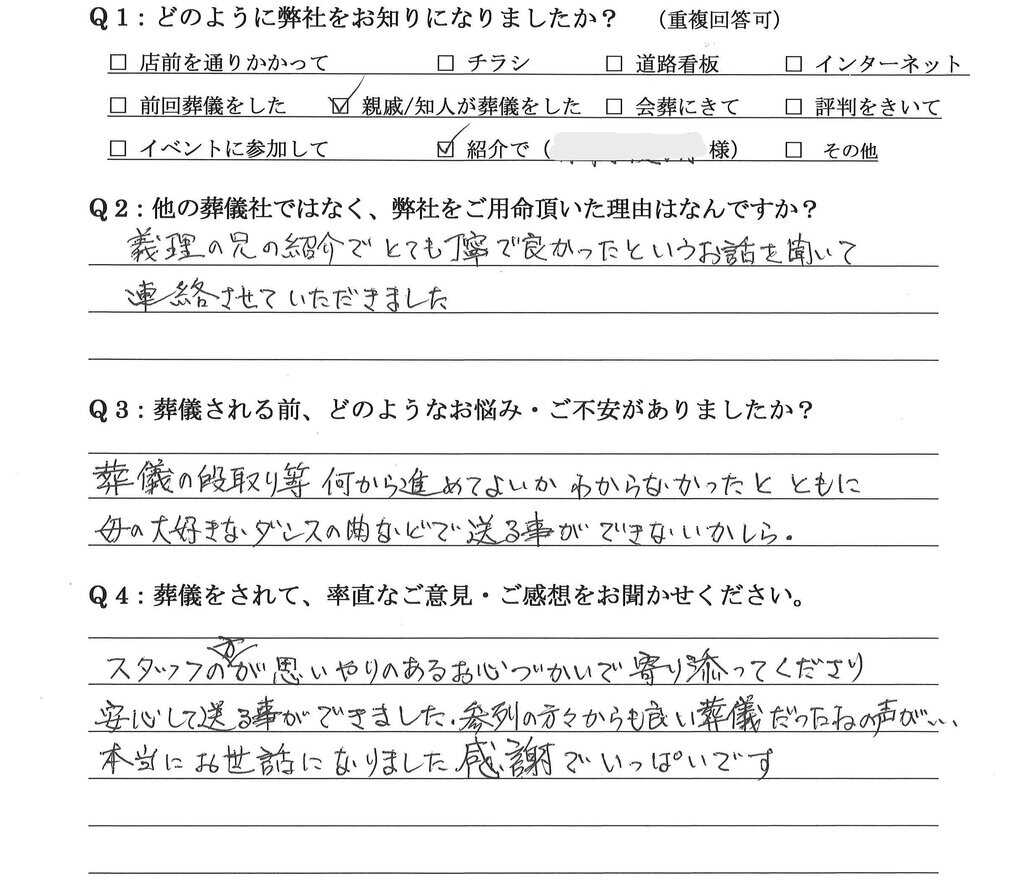 Q1：どのように弊社をお知りになりましたか？ （重複回答可）
□ 店前を通りかかって □ チラシ □ 道路看板 □ インターネット
□ 前回葬儀をした ☑ 親戚/知人が葬儀をした □ 会葬にきて □ 評判をきいて
□ イベントに参加して ☑ 紹介で（ 様） □ その他
Q2：他の葬儀社ではなく、弊社をご用命頂いた理由はなんですか？
義理の兄の紹介でとても丁寧で良かったというお話を聞いて
連絡させていただきました
Q3：葬儀される前、どのようなお悩み・ご不安がありましたか？
葬儀の段取り等 何から進めてよいか わからなかったと ともに
母の大好きなダンスの曲などで送る事ができないかしら。
Q4：葬儀をされて、率直なご意見・ご感想をお聞かせください。
スタッフの方が思いやりのあるお心づかいで寄り添ってくださり
安心して送る事ができました。参列の方々からも良い葬儀だったねの声が…、
本当にお世話になりました 感謝でいっぱいです